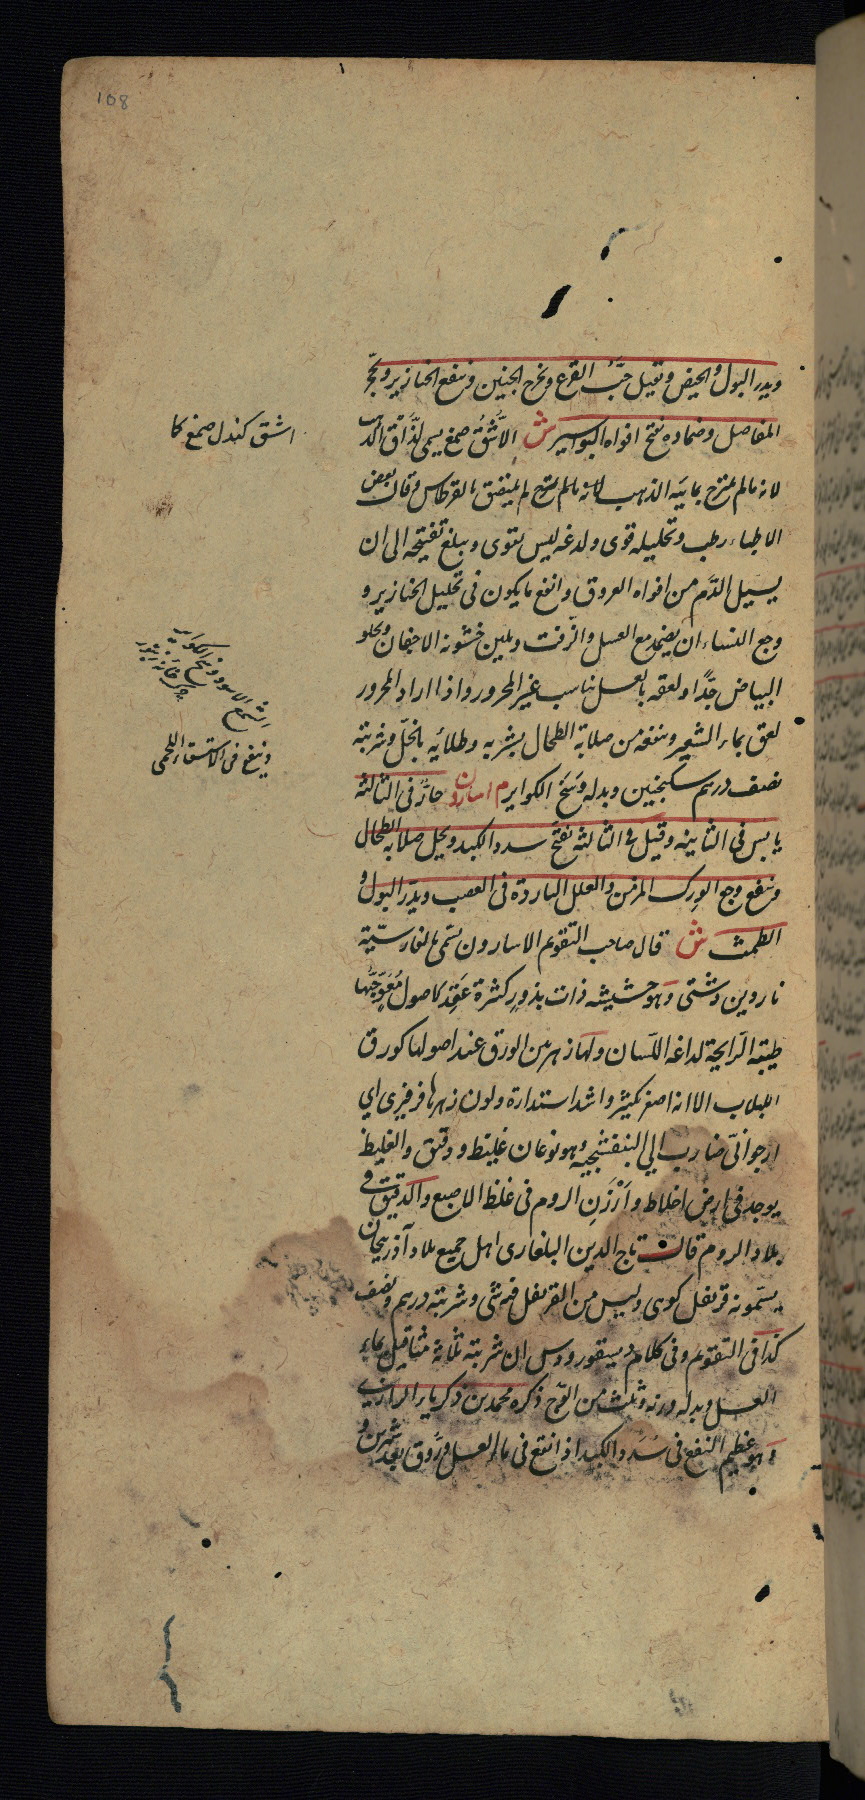 108
ويدر البول والحيض ويقتل حبّ القرع ويخرج الجنين وينفع الخنازير وتحجّر
المفاصل وضماده يفتح افواه البواسير ش الاُشَّقُ صمغ يسمى لَذَّاق الذهب
لانه مالم يمتزج بمائيه الذهب لانه مالم يمتزج لم يلتصق بالقرطاس وقال بعض
الاطباء رطب وتحليله قوى ولذعه ليس بقوى ويبلغ تفتيحه الى ان
يسيل الدَّم من افواه العروق وانفع ما يكون فى تحليل الخنازير و
وجع النساء ان يضمد مع العسل والزّفت ويلين خشونه الاجفان ويجلو
البياض جدًّا ولعقه بالعسل يناسب غير المحرور واذا اراد المحرور
لعق بماء الشعير وينفعه من صلابة الطحال بشربه وطلائه بالخلّ وشربته
نصف درهم سكنجبين وبدله وَسَخ الكواير م اسارون حارٌ فى الثالثه
يابس فى الثانيه وقيل فى الثالثه يفتح سدد الكبد ويحل صلابة الطحال
وينفع وجع الورك المزمن والعلل الباردة فى العصب ويدرّ البول و
الطمث ش قال صاحب التقويم الاسارون يسمى بالفارسيّة
ناردين دشتى وهو حشيشه ذات بذور كثيرة عَقِد الاصول مُعْوَجُّها
طيّبة الرّايحة لداغه اللّسان ولها زهر بين الورق عند اصولها كورق
اللبلاب الا انه اصغر بكثير واشد استدارة ولون زهرها فرفيرى اى
ارجوانّى ضارب الي البنفسجيه وهو نوعان غليظ ودقيق والغليظ
يوجد فى ارض اخلاط وأَرْزَنِ الروم فى غلظ الاصبع والدقيق فى
بلاد الروم قال تاج الدين البلغارى اهل جميع بلاد آذربيجان
يسمّونه قرنفل كوهى وليس من القرنفل فيه شئ وشربته درهم ونصف
كذا فى التقويم وفى كلام ديسقوردوس ان شربته ثلاثة مثاقيل بماء
العسل وبدله وزنه وثلث من الوَّج ذكره محمد بن زكريا الرازى
وهو عظيم النفع فى سُدَد الكبد اذ انقع فى ماء العسل ورُوّق بعد شهرين و
اشق كندل صمغ كا
الشمع الاسود وسخ الكواير
وينفع فى الاستسقاء اللحمى